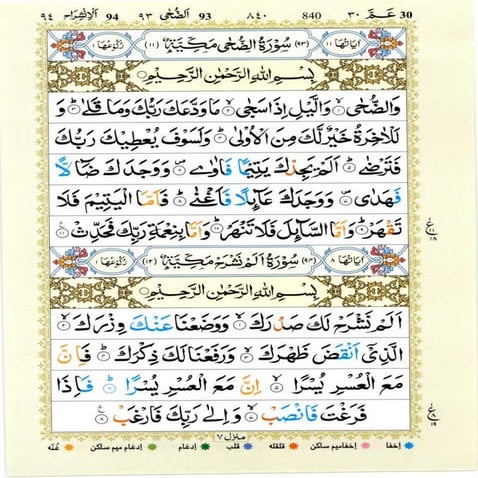 عَمَّ ٣٠ 30 840 ٨٤٠ 93 الضُّحٰى ٩٣ 94 الانشراح ٩٤
اٰيَاتُهَا ١١ (٩٣) سُوْرَةُ الضُّحٰى مَكِّيَّةٌ (١١) رُكُوْعُهَا ١
بِسْمِ اللّٰهِ الرَّحْمٰنِ الرَّحِيْمِ
وَالضُّحٰى ۙ﴿١﴾ وَالَّيْلِ اِذَا سَجٰى ۙ﴿٢﴾ مَا وَدَّعَكَ رَبُّكَ وَمَا قَلٰى ؕ﴿٣﴾ وَ
لَلْاٰخِرَةُ خَيْرٌ لَّكَ مِنَ الْاُوْلٰى ؕ﴿٤﴾ وَلَسَوْفَ يُعْطِيْكَ رَبُّكَ
فَتَرْضٰى ؕ﴿٥﴾ اَلَمْ يَجِدْكَ يَتِيْمًا فَاٰوٰى ۪﴿٦﴾ وَوَجَدَكَ ضَآ لًّا
فَهَدٰى ۪﴿٧﴾ وَوَجَدَكَ عَآئِلًا فَاَغْنٰى ؕ﴿٨﴾ فَاَمَّا الْيَتِيْمَ فَلَا
تَقْهَرْ ؕ﴿٩﴾ وَاَمَّا السَّآئِلَ فَلَا تَنْهَرْ ؕ﴿١٠﴾ وَاَمَّا بِنِعْمَةِ رَبِّكَ فَحَدِّثْ ﴿١١﴾
اٰيَاتُهَا ٨ (٩٤) سُوْرَةُ اَلَمْ نَشْرَحْ مَكِّيَّةٌ (١٢) رُكُوْعُهَا ١
بِسْمِ اللّٰهِ الرَّحْمٰنِ الرَّحِيْمِ
اَلَمْ نَشْرَحْ لَكَ صَدْرَكَ ۙ﴿١﴾ وَوَضَعْنَا عَنْكَ وِزْرَكَ ۙ﴿٢﴾
الَّذِيْٓ اَنْقَضَ ظَهْرَكَ ۙ﴿٣﴾ وَرَفَعْنَا لَكَ ذِكْرَكَ ؕ﴿٤﴾ فَاِنَّ
مَعَ الْعُسْرِ يُسْرًا ۙ﴿٥﴾ اِنَّ مَعَ الْعُسْرِ يُسْرًا ؕ﴿٦﴾ فَاِذَا
فَرَغْتَ فَانْصَبْ ۙ﴿٧﴾ وَاِلٰى رَبِّكَ فَارْغَبْ ﴿٨﴾
منزل ٧
اخفا اخفامیم ساکن قلقله قلب ادغام ادغام میم ساکن غنه